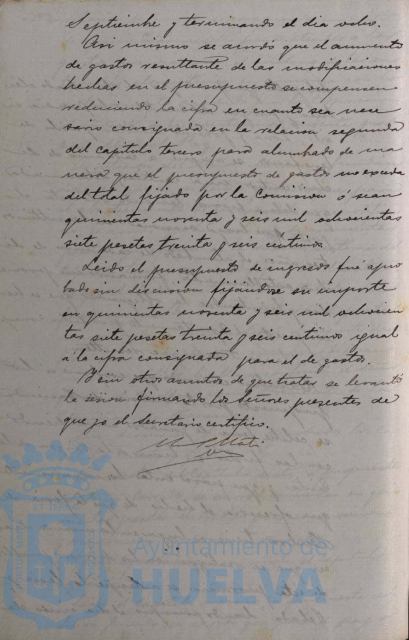 Septiembre y terminando el dia ocho.
Asi mismo se acordó que el aumento
de gastos resultante de las modificaciones
hechas en el presupuesto se compensen
reduciendo la cifra en cuanto sea nece
sario consignada en la relacion segunda
del capítulo tercero para alumbrado de ma
nera que el presupuesto de gastos no exceda
del total fijado por la Comision ó sean
quinientas noventa y seis mil ochocientas
siete pesetas treinta y seis céntimos.
Leido el presupuesto de ingresos fué apro
bado sin discusion fijandose su importe
en quinientas noventa y seis mil ochocien
tas siete pesetas treinta y seis céntimos igual
á la cifra consignada para el de gastos.
Y sin otros asuntos de que tratar se levantó
la sesion firmando los Señores presentes de
que yo el Secretario certifico.
Ayuntamiento de
HUELVA